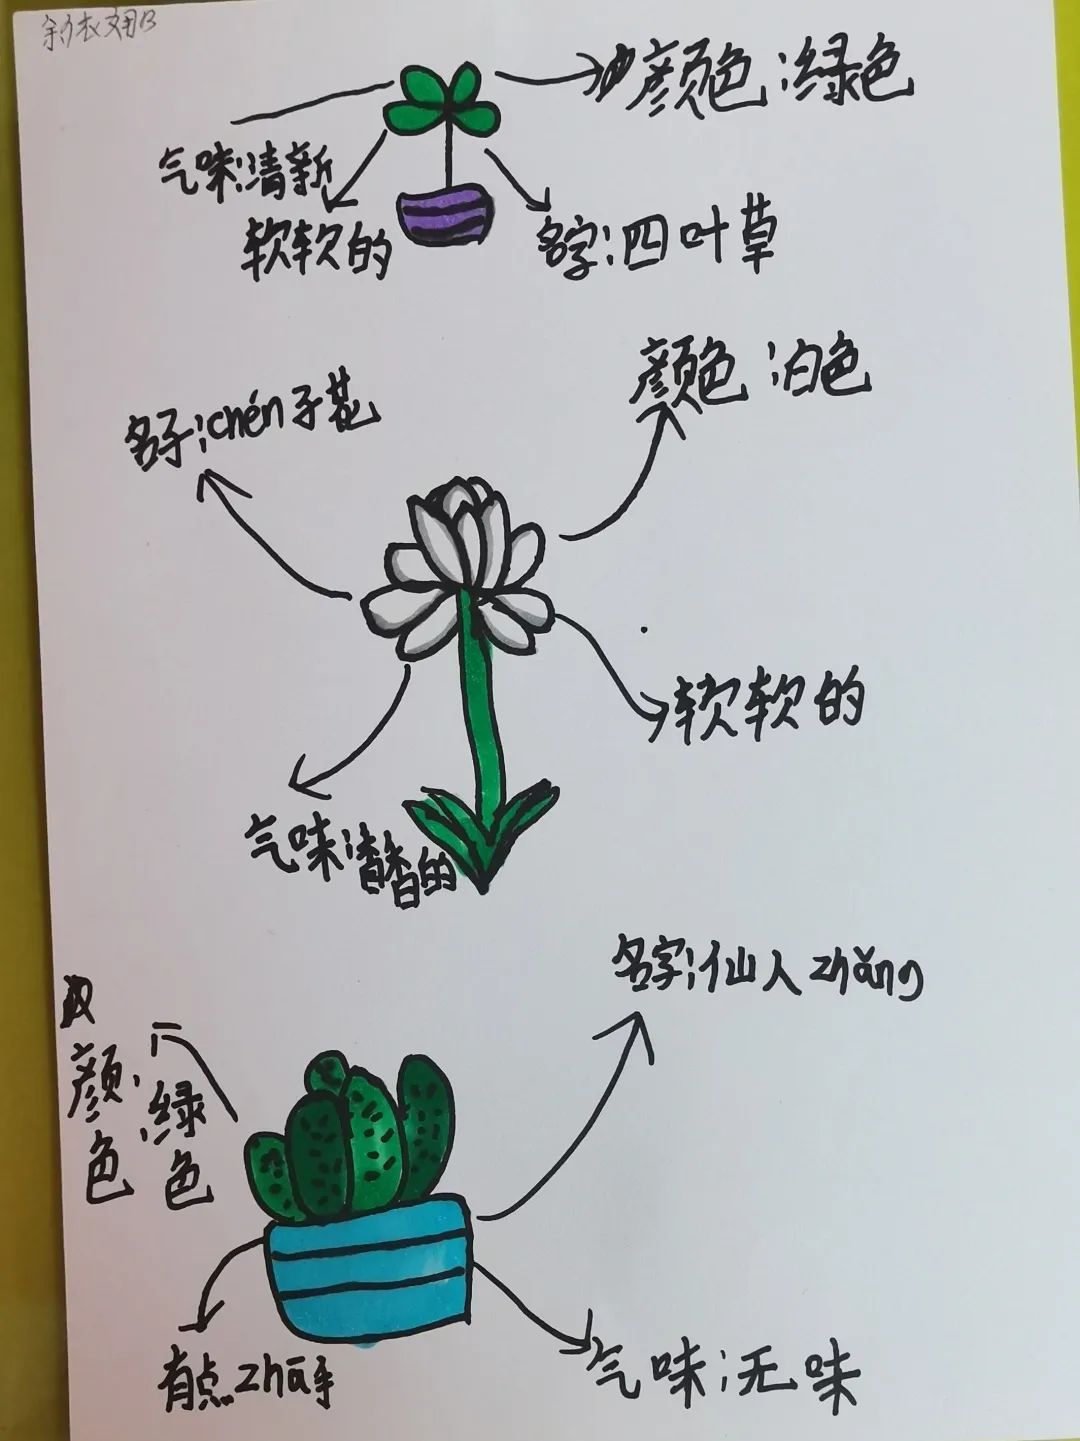 颜色:绿色
气味:清新
软软的
名字:四叶草
颜色:白色
名子:chén子花
软软的
气味:香香的
名字:仙人zhǎng
颜色:绿色
有点zhā手
气味:无味